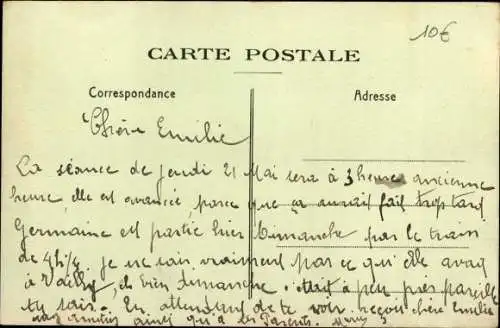 10€
CARTE POSTALE
Correspondance
Adresse
Chère Emilie
La séance de jeudi 21 Mai sera à 3 heures ancienne
heure, elle est avancée, parce que ça aurait fait trop tard
Germaine est partie hier Dimanche par le train
de 4h¼ je ne sais vraiment pas ce qu'elle avait
à, et bien dimanche c'était à peu près pareille
tu sais. En attendant de te voir, reçois chère Emilie
mes amitiés ainsi qu'à tes Parents.